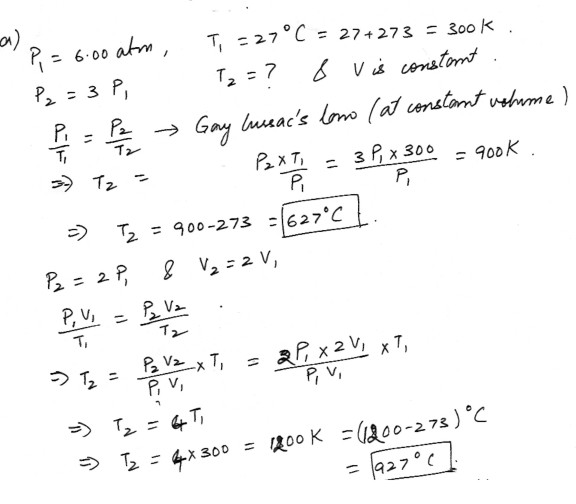 a) P₁ = 6.00 atm, T₁ = 27°C = 27+273 = 300K.
P₂ = 3 P₁ T₂ = ? & V is constant.
P₁/T₁ = P₂/T₂ → Gay Lussac's law (at constant volume)
⇒ T₂ = P₂×T₁/P₁ = 3P₁×300/P₁ = 900K.
⇒ T₂ = 900-273 = 627°C.
P₂ = 2P₁ & V₂ = 2V₁
P₁V₁/T₁ = P₂V₂/T₂.
⇒ T₂ = P₂V₂/P₁V₁ × T₁ = 2P₁ × 2V₁/P₁V₁ × T₁
⇒ T₂ = 4T₁
⇒ T₂ = 4×300 = 1200K = (1200-273)°C
= 927°C.